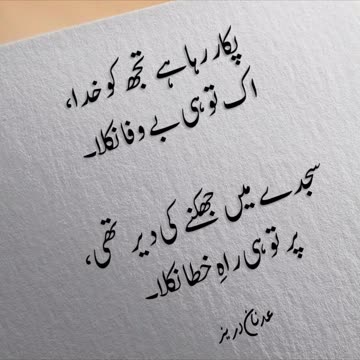 پکار رہا ہے تجھ کو خدا،
اک تو ہی بے وفا نکلا۔
سجدے میں جھکنے کی دیر تھی،
پر تو ہی راہِ خطا نکلا۔
عدنان دریز